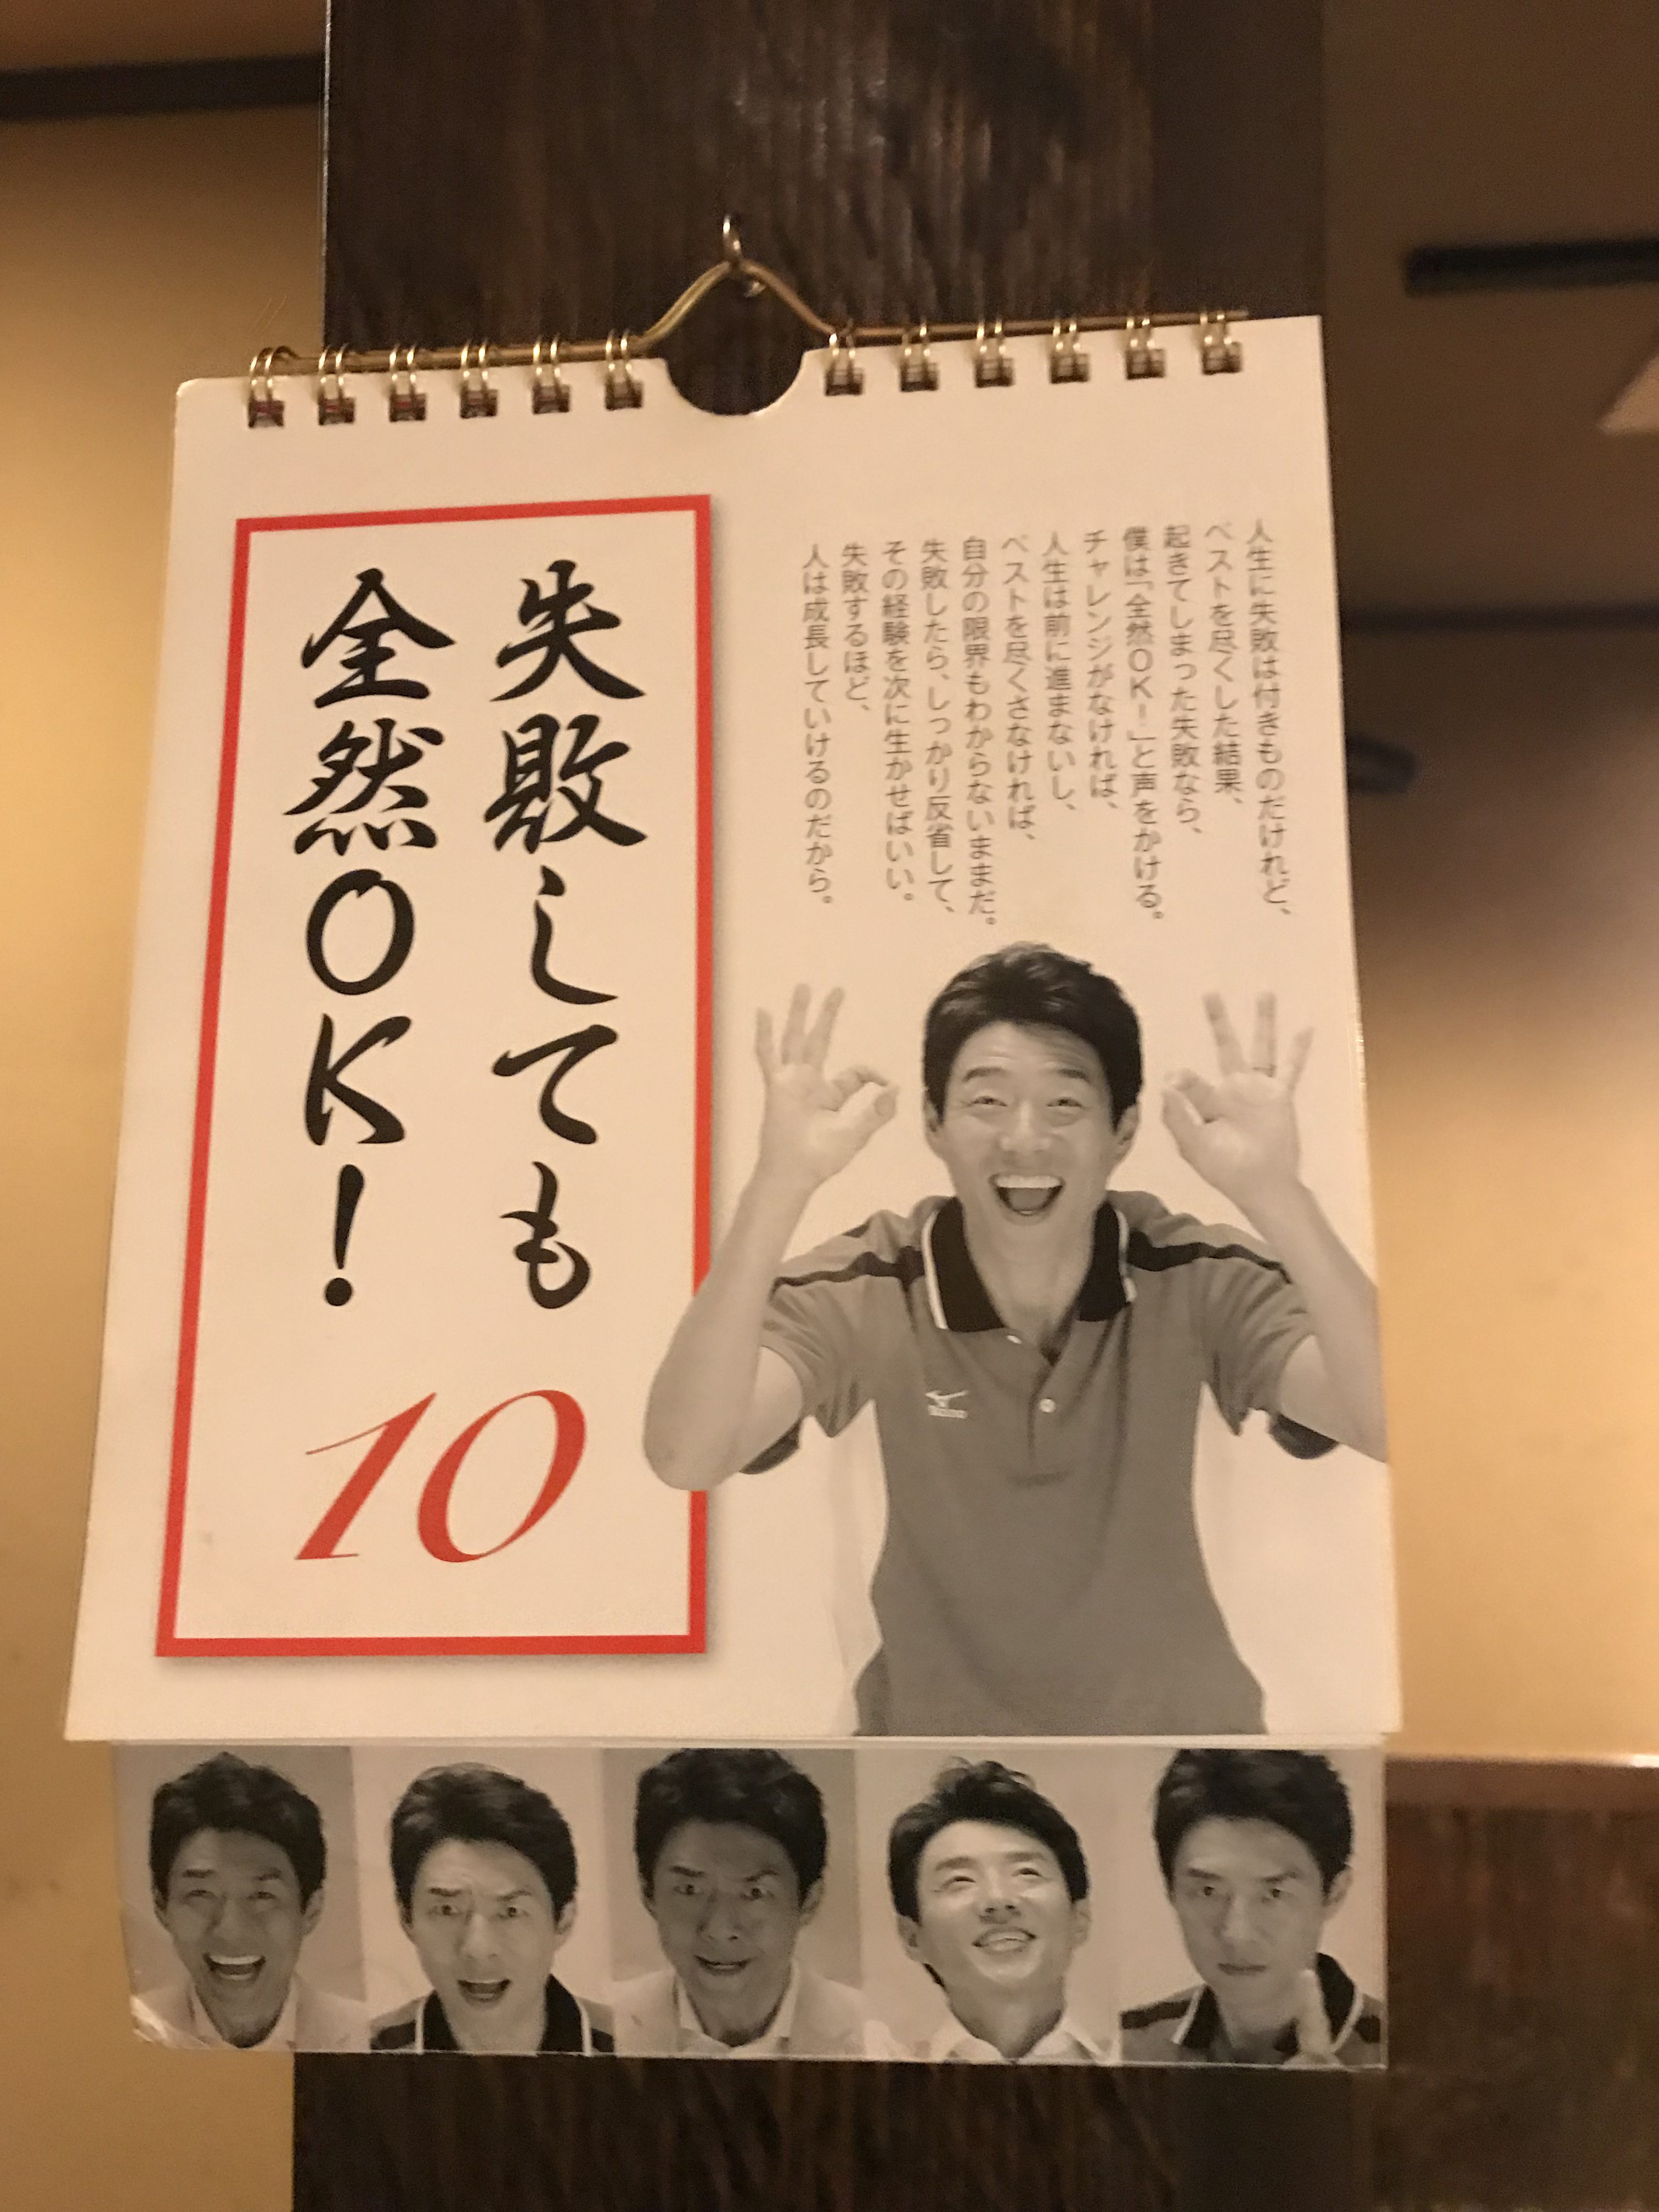 人生に失敗は付きものだけれど、
ベストを尽くした結果、
起きてしまった失敗なら、
僕は「全然OK！」と声をかける。
チャレンジがなければ、
人生は前に進まないし、
ベストを尽くさなければ、
自分の限界もわからないままだ。
失敗したら、しっかり反省して、
その経験を次に生かせばいい。
失敗するほど、
人は成長していけるのだから。
失敗しても
全然OK！
10